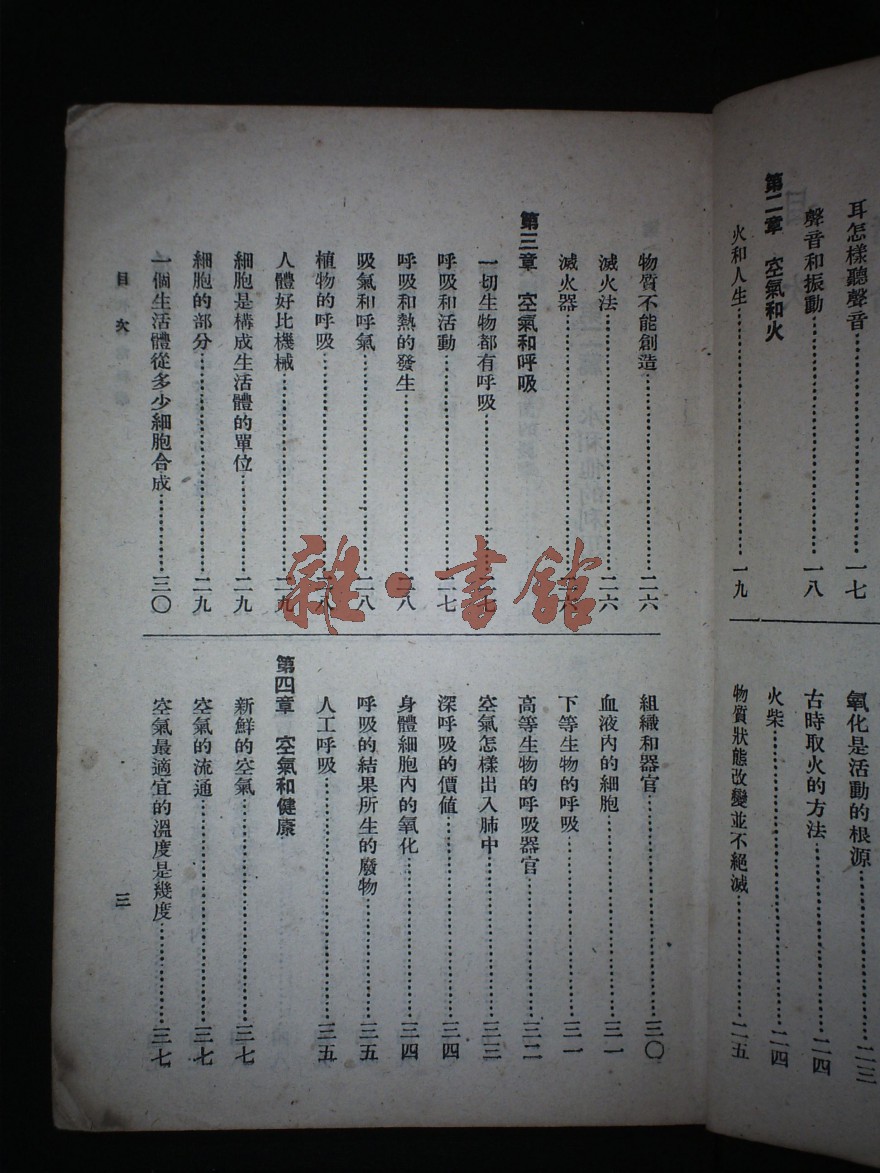 耳怎樣聽聲音……一七
聲音和振動……一八
第二章　空氣和火
火和人生……一九
氧化是活動的根源……二三
古時取火的方法……二四
火柴……二四
物質狀態改變並不絕滅……二五
物質不能創造……二六
滅火法……二六
滅火器……二六
第三章　空氣和呼吸
一切生物都有呼吸……二七
呼吸和活動……二七
呼吸和熱的發生……二八
吸氣和呼氣……二八
植物的呼吸……二八
人體好比機械……二九
細胞是構成生活體的單位……二九
細胞的部分……二九
一個生活體從多少細胞合成……三〇
組織和器官……三〇
血液內的細胞……三一
下等生物的呼吸……三一
高等生物的呼吸器官……三二
空氣怎樣出入肺中……三三
深呼吸的價值……三四
身體細胞內的氧化……三四
呼吸的結果所生的廢物……三五
人工呼吸……三五
第四章　空氣和健康
新鮮的空氣……三七
空氣的流通……三七
空氣最適宜的溫度是幾度……三七
目次
三
雜·書館